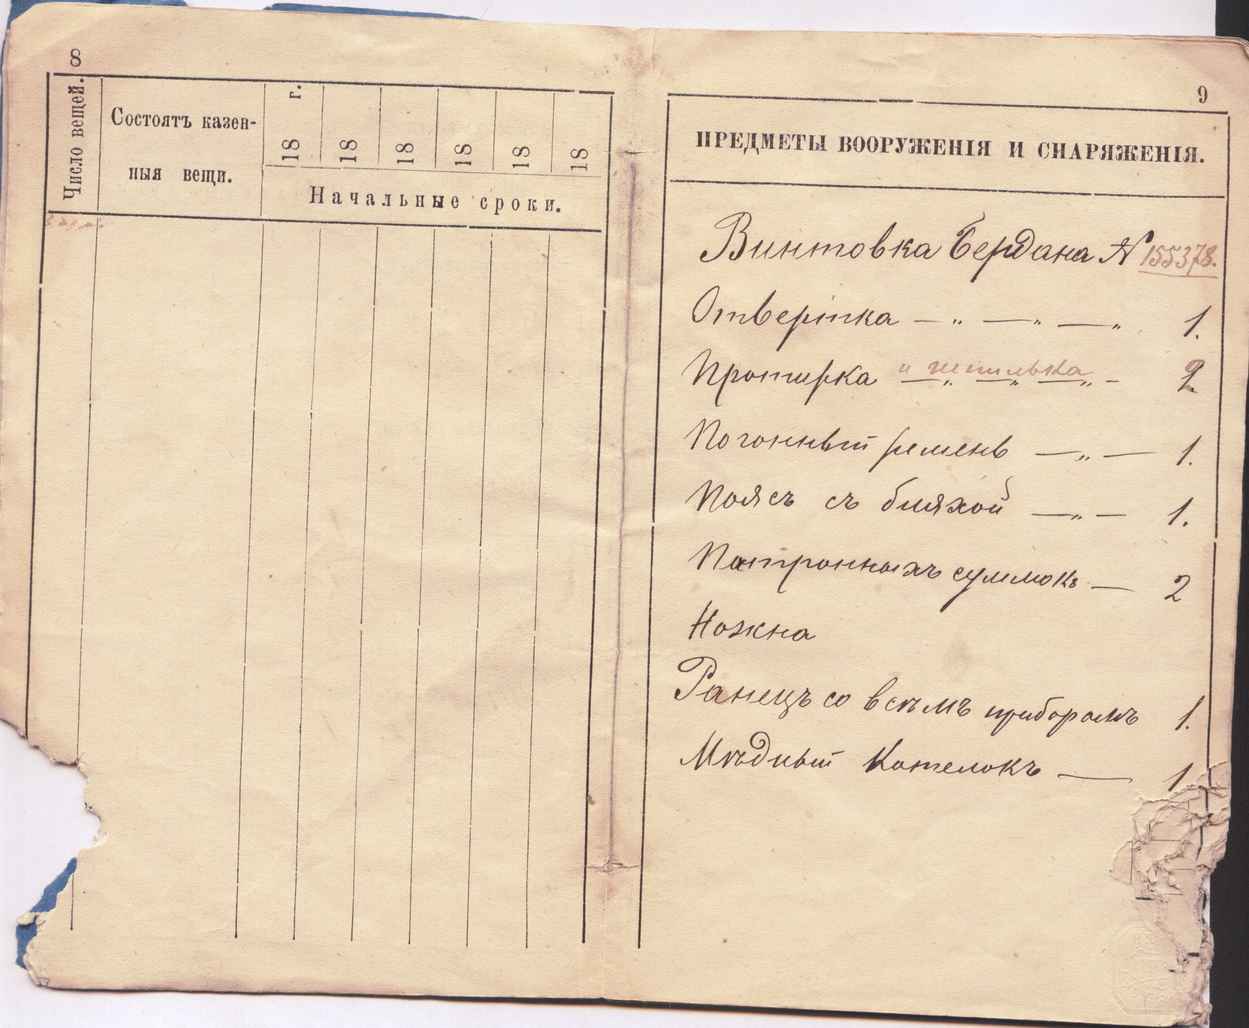 8
Число вещей.
Состоятъ казен-
ныя вещи.
18 г.
18
18
18
18
18
Начальные сроки.
9
ПРЕДМЕТЫ ВООРУЖЕНІЯ И СНАРЯЖЕНІЯ.
Винтовка Бердана № 155378.
Отвертка — „ — „ — „ 1.
Протирка и шпилька — „ — „ — „ — 2
Погонный ремень — „ — 1.
Поясъ съ бляхой — „ — 1.
Патронныхъ суммокъ — 2
Ножна
Ранецъ со всѣмъ приборомъ 1.
Мѣдный Котелокъ — 1